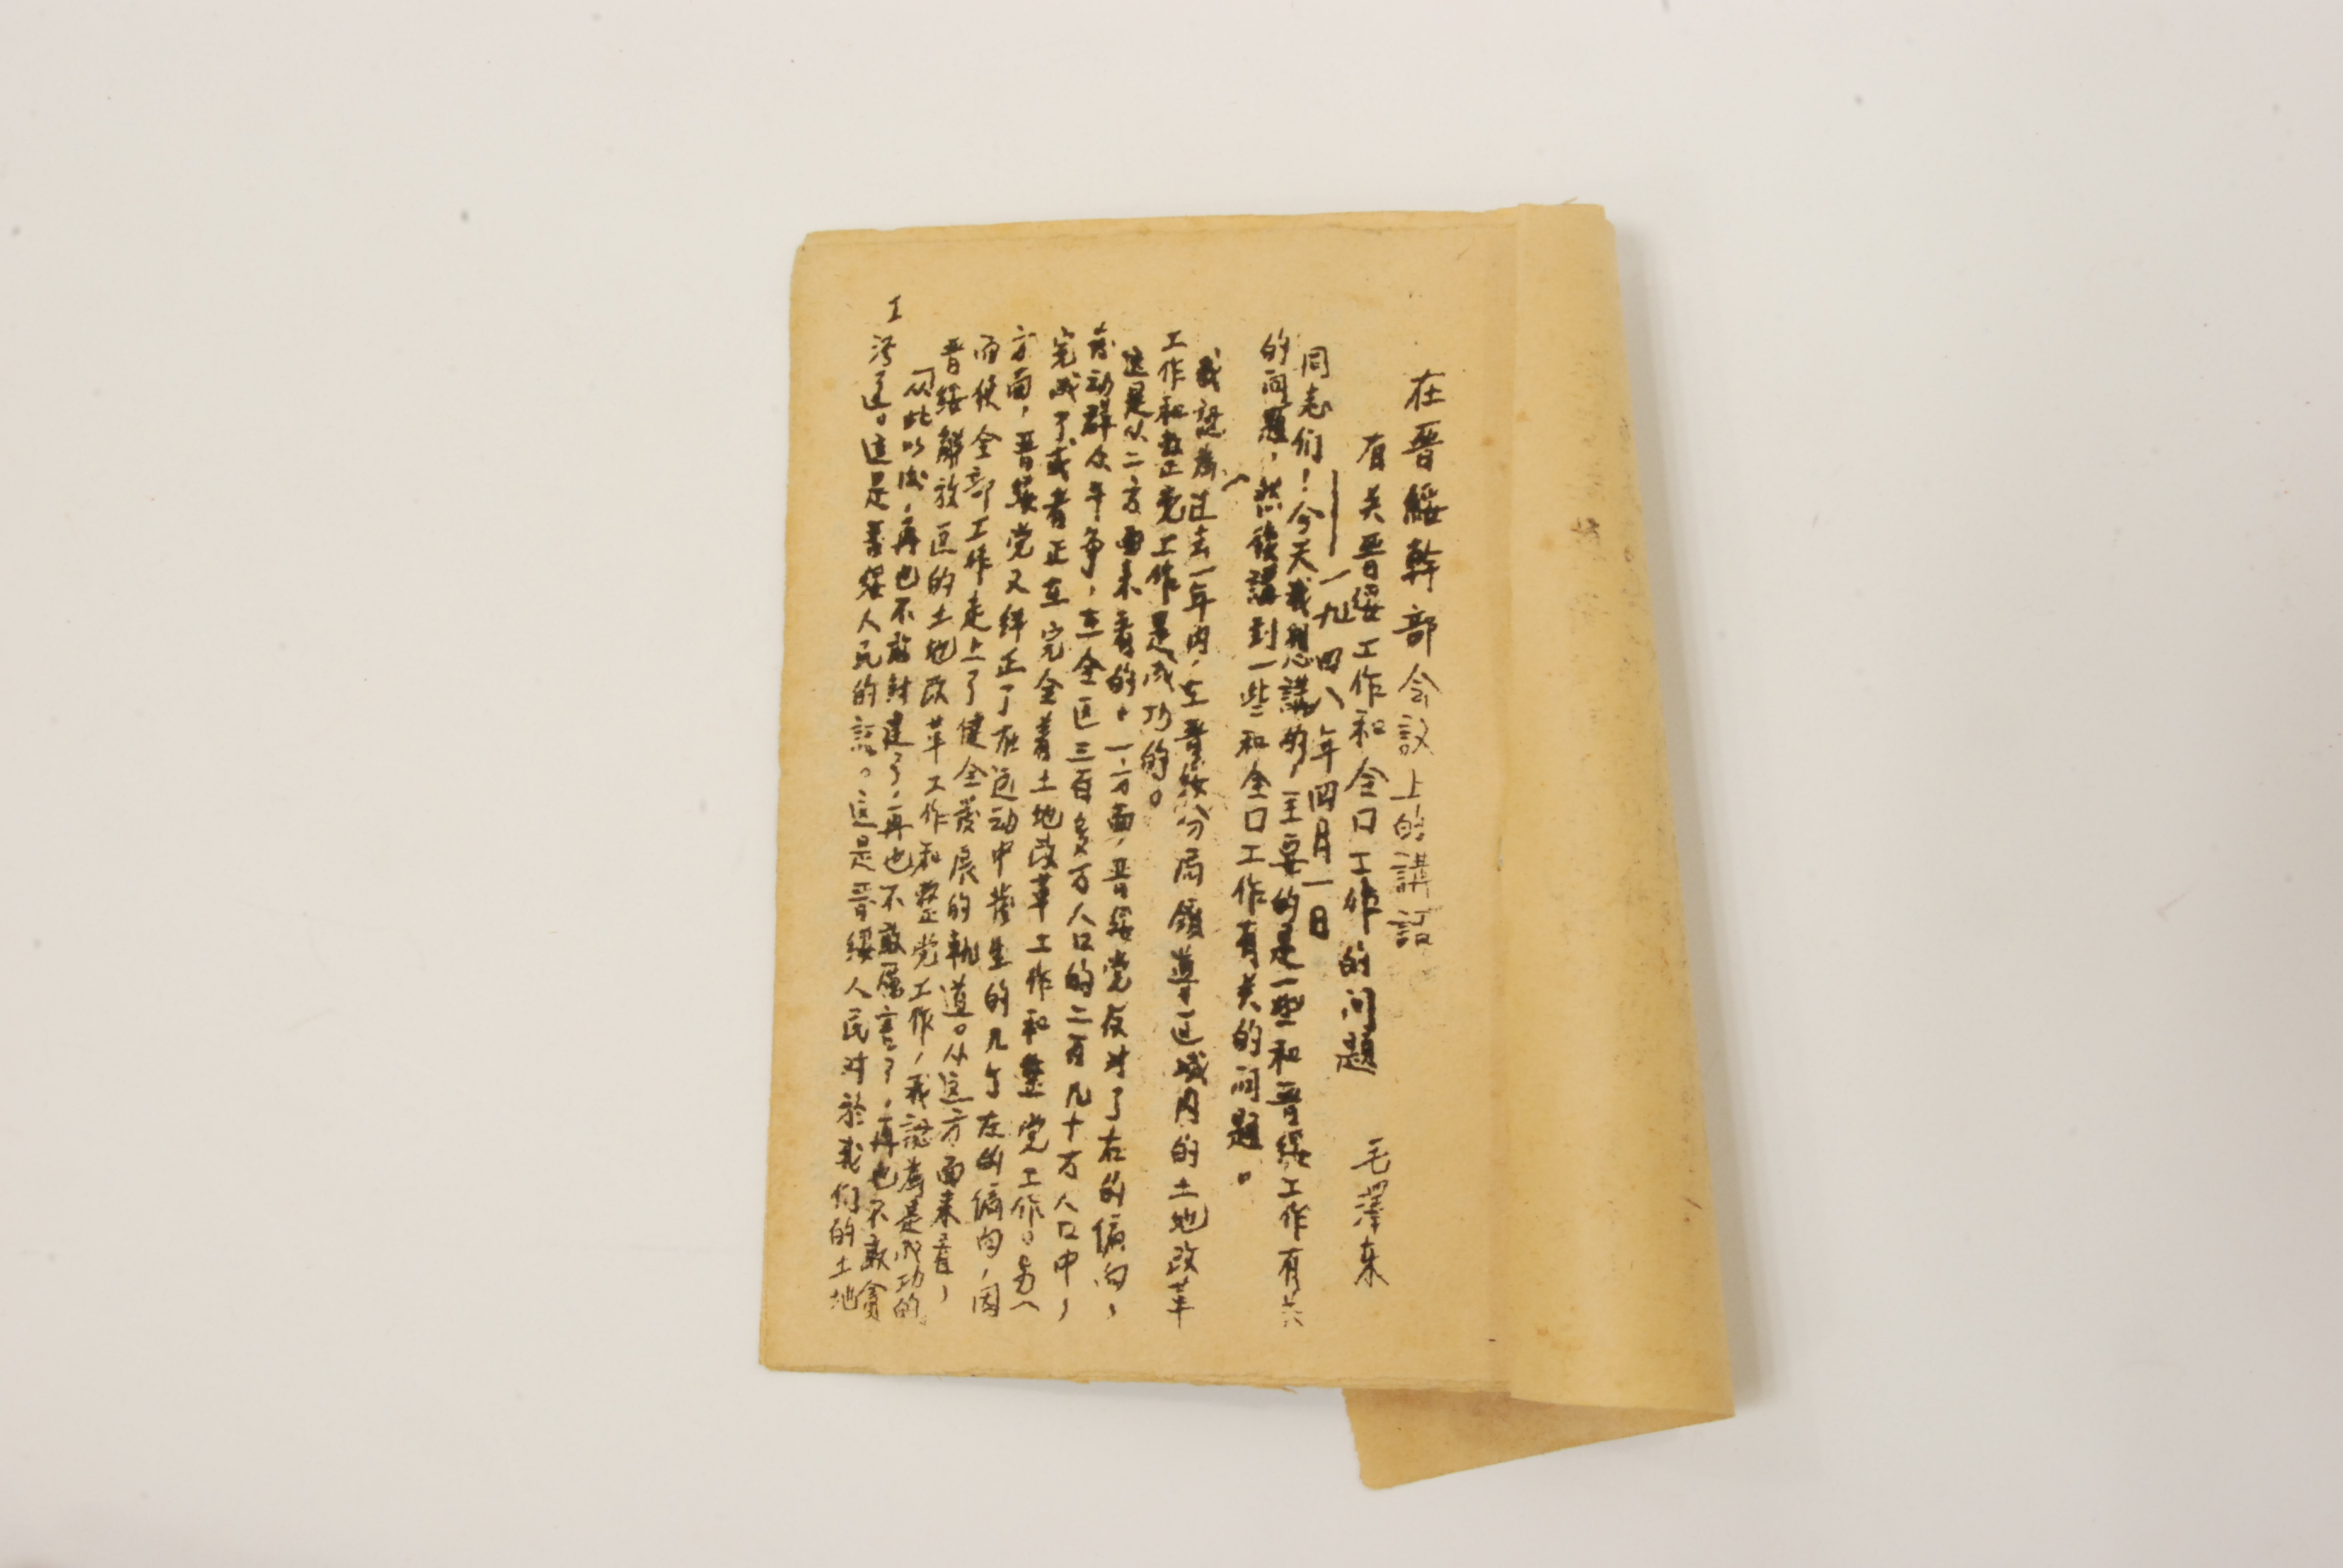 在晋綏幹部会議上的講話
有关晋綏工作和全口工作的问題 毛澤东
——一九四八年四月一日
同志们！今天我想講的，主要的是一些和晋綏工作有关
的问題，然後講到一些和全口工作有关的问題。
我認為过去一年内，在晋綏分局領導区域内的土地改革
工作和整党工作是成功的。
這是从二方面来看的，一方面，晋綏党反对了右的偏向，
發动群众斗争，在全区三百多万人口的二百几十万人口中，
完成了或者正在完全着土地改革工作和整党工作。另一
方面，晋綏党又纠正了在运动中發生的几个左的偏向，因
而使全部工作走上了健全發展的軌道。从这方面来看，
晋綏解放区的土地改革工作和整党工作，我認為是成功的
「从此以後，再也不敢封建了，再也不敢厲害了，再也不敢貪
污了。這是晋綏人民的話。這是晋綏人民对於我们的土地